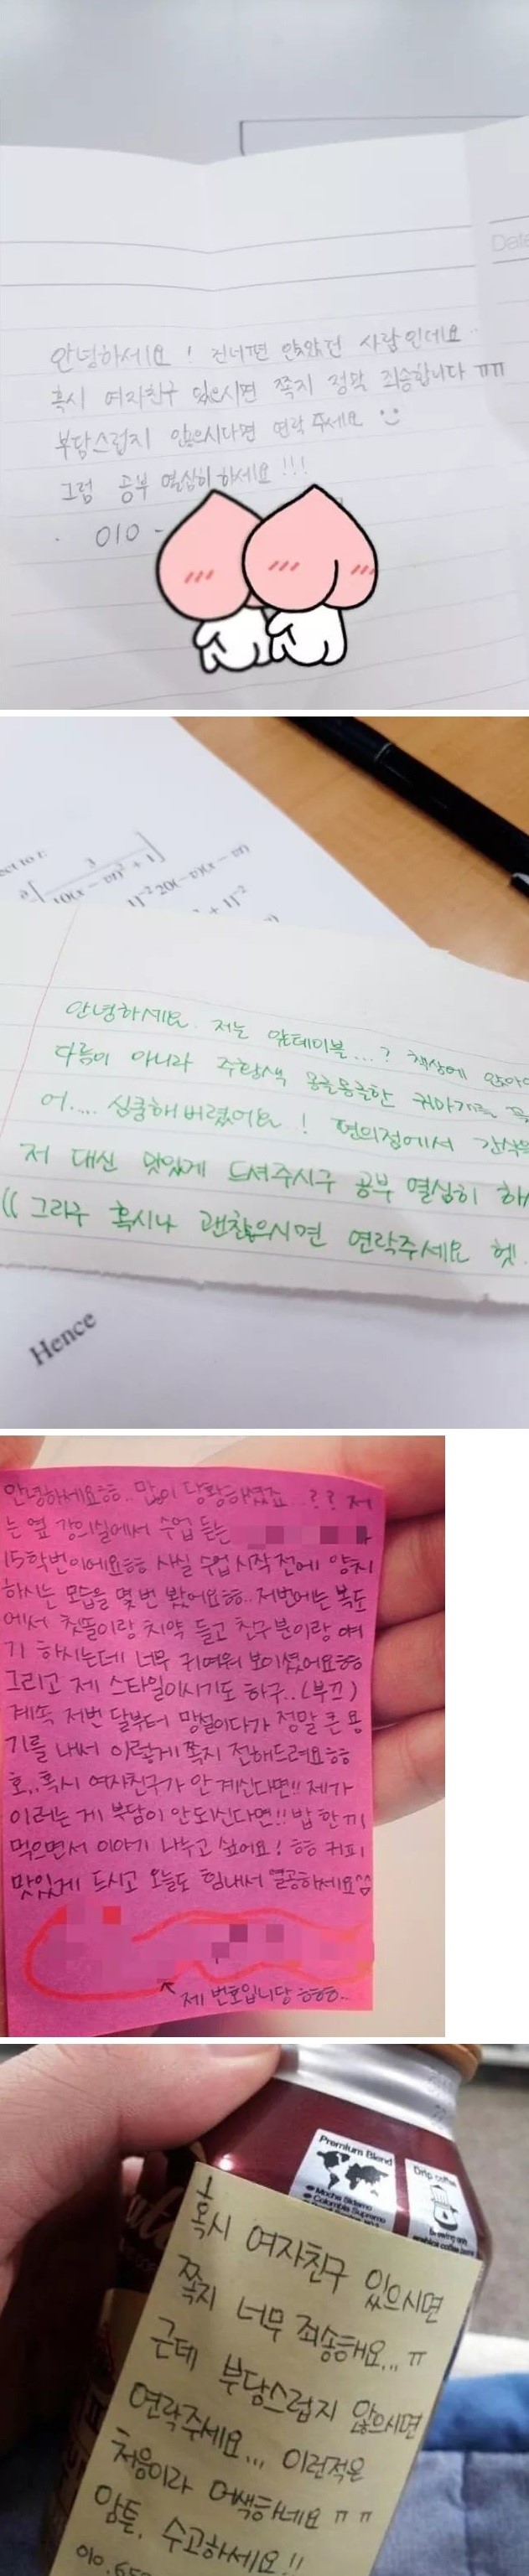 Date
안녕하세요! 건너편 앉았던 사람인데요..
혹시 여자친구 있으시면 쪽지 정말 죄송합니다 ㅠㅠ
부담스럽지 않으시다면 연락 주세요
그럼 공부 열심히 하세요!!!
010 -
안녕하세요. 저는 앞테이블...? 책상에
다름이 아니라 주황색 몽글몽글한 귀마개를
어.... 심쿵해버렸어요! 편의점에서
저 대신 맛있게 드셔주시구 공부 열심히
(( 그리구 혹시나 괜찮으시면 연락주세요 헷
Hence
안녕하세요ㅎㅎ.. 많이 당황하셨죠..?? 저
는 옆 강의실에서 수업 듣는
15학번이에요ㅎㅎ 사실 수업 시작 전에 양치
하시는 모습을 몇 번 봤어요ㅎㅎ.. 저번에는 복도
에서 칫똘이랑 치약 들고 친구분이랑 얘
기 하시는데 너무 귀여워 보이셨어요ㅎㅎ
그리고 제 스타일이시기도 하구..(부끄)
계속 저번 달부터 망설이다가 정말 큰 용
기를 내서 이렇게 쪽지 전해드려요ㅎㅎ
호..혹시 여자친구가 안 계신다면!! 제가
이러는 게 부담이 안되신다면!! 밥 한 끼
먹으면서 이야기 나누고 싶어요! ㅎㅎ 커피
맛있게 드시고 오늘도 힘내서 열공하세요^^
제 번호입니당 ㅎㅎㅎ..
Premium Blend
Drip coffee
Mocha Sidamo
Colombia Supremo
혹시 여자친구 있으시면
쪽지 너무 죄송해요... ㅠ
근데 부담스럽지 않으시면
연락주세요... 이런적은
처음이라 어색하네요 ㅠㅠ
암튼, 수고하세요!!